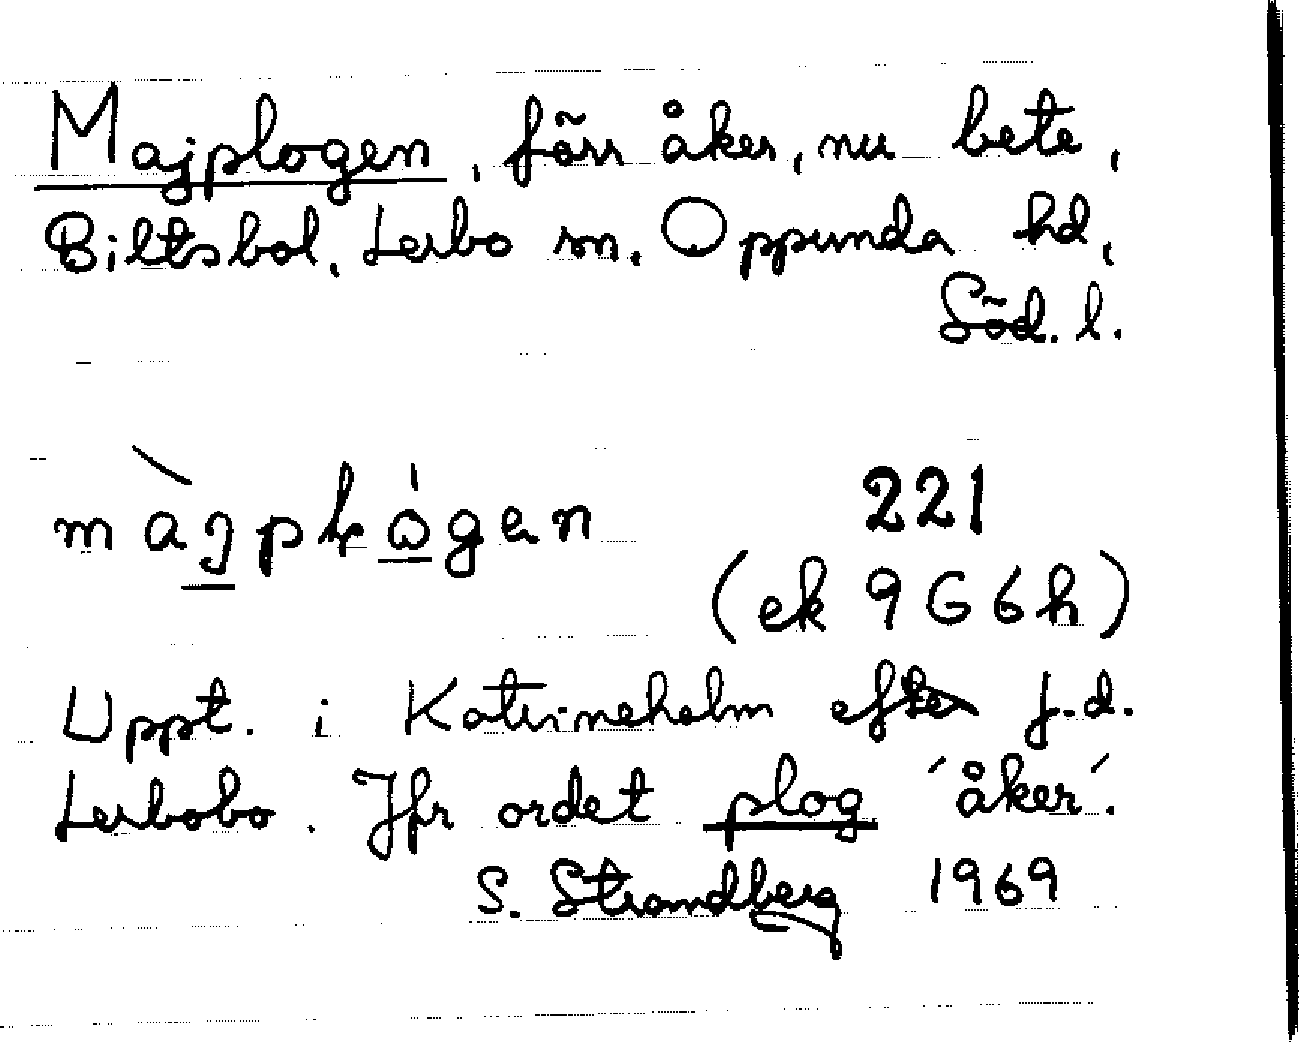 Majplogen, förr åker, nu bete,
Biltsbol, Lerbo sn. Oppunda hd,
Söd. l.
màjpłógen 221
(ek 9G6h)
Uppt. i Katrineholm efter f.d.
Lerbobo. Jfr ordet plog 'åker'.
S. Strandberg 1969